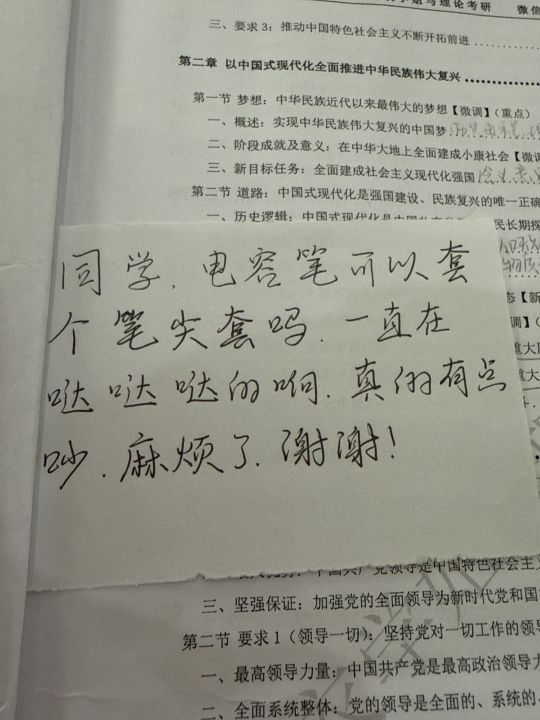 马理论考研 微信
三、要求 3：推动中国特色社会主义不断开拓前进
第二章 以中国式现代化全面推进中华民族伟大复兴
第一节 梦想：中华民族近代以来最伟大的梦想【微调】（重点）
一、概述：实现中华民族伟大复兴的中国梦
二、阶段成就及意义：在中华大地上全面建成小康社会【微调
三、新目标任务：全面建成社会主义现代化强国
第二节 道路：中国式现代化是强国建设、民族复兴的唯一正确
一、历史逻辑：中国式现代化是中国共产党 民长期探
同学，电容笔可以套
个笔尖套吗，一直在
哒哒哒的啊，真的有点
吵，麻烦了，谢谢！
态【新
调】（
重大
重大
中国共产党领导是中国特色社会主义
三、坚强保证：加强党的全面领导为新时代党和国
第二节 要求 1（领导一切）：坚持党对一切工作的领导
一、最高领导力量：中国共产党是最高政治领导力
二、全面系统整体：党的领导是全面的、系统的、